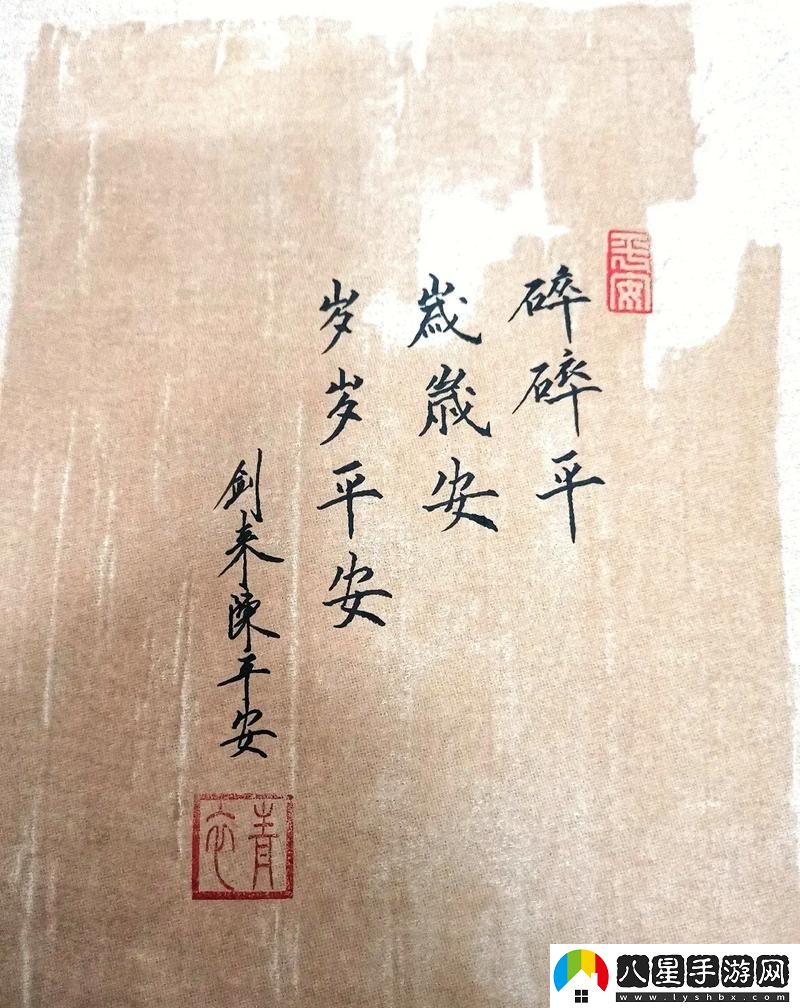 平安
碎碎平
歲歲安
岁岁平安
剑来陳平安
青衣
八星手游网
www.lyshbx.com